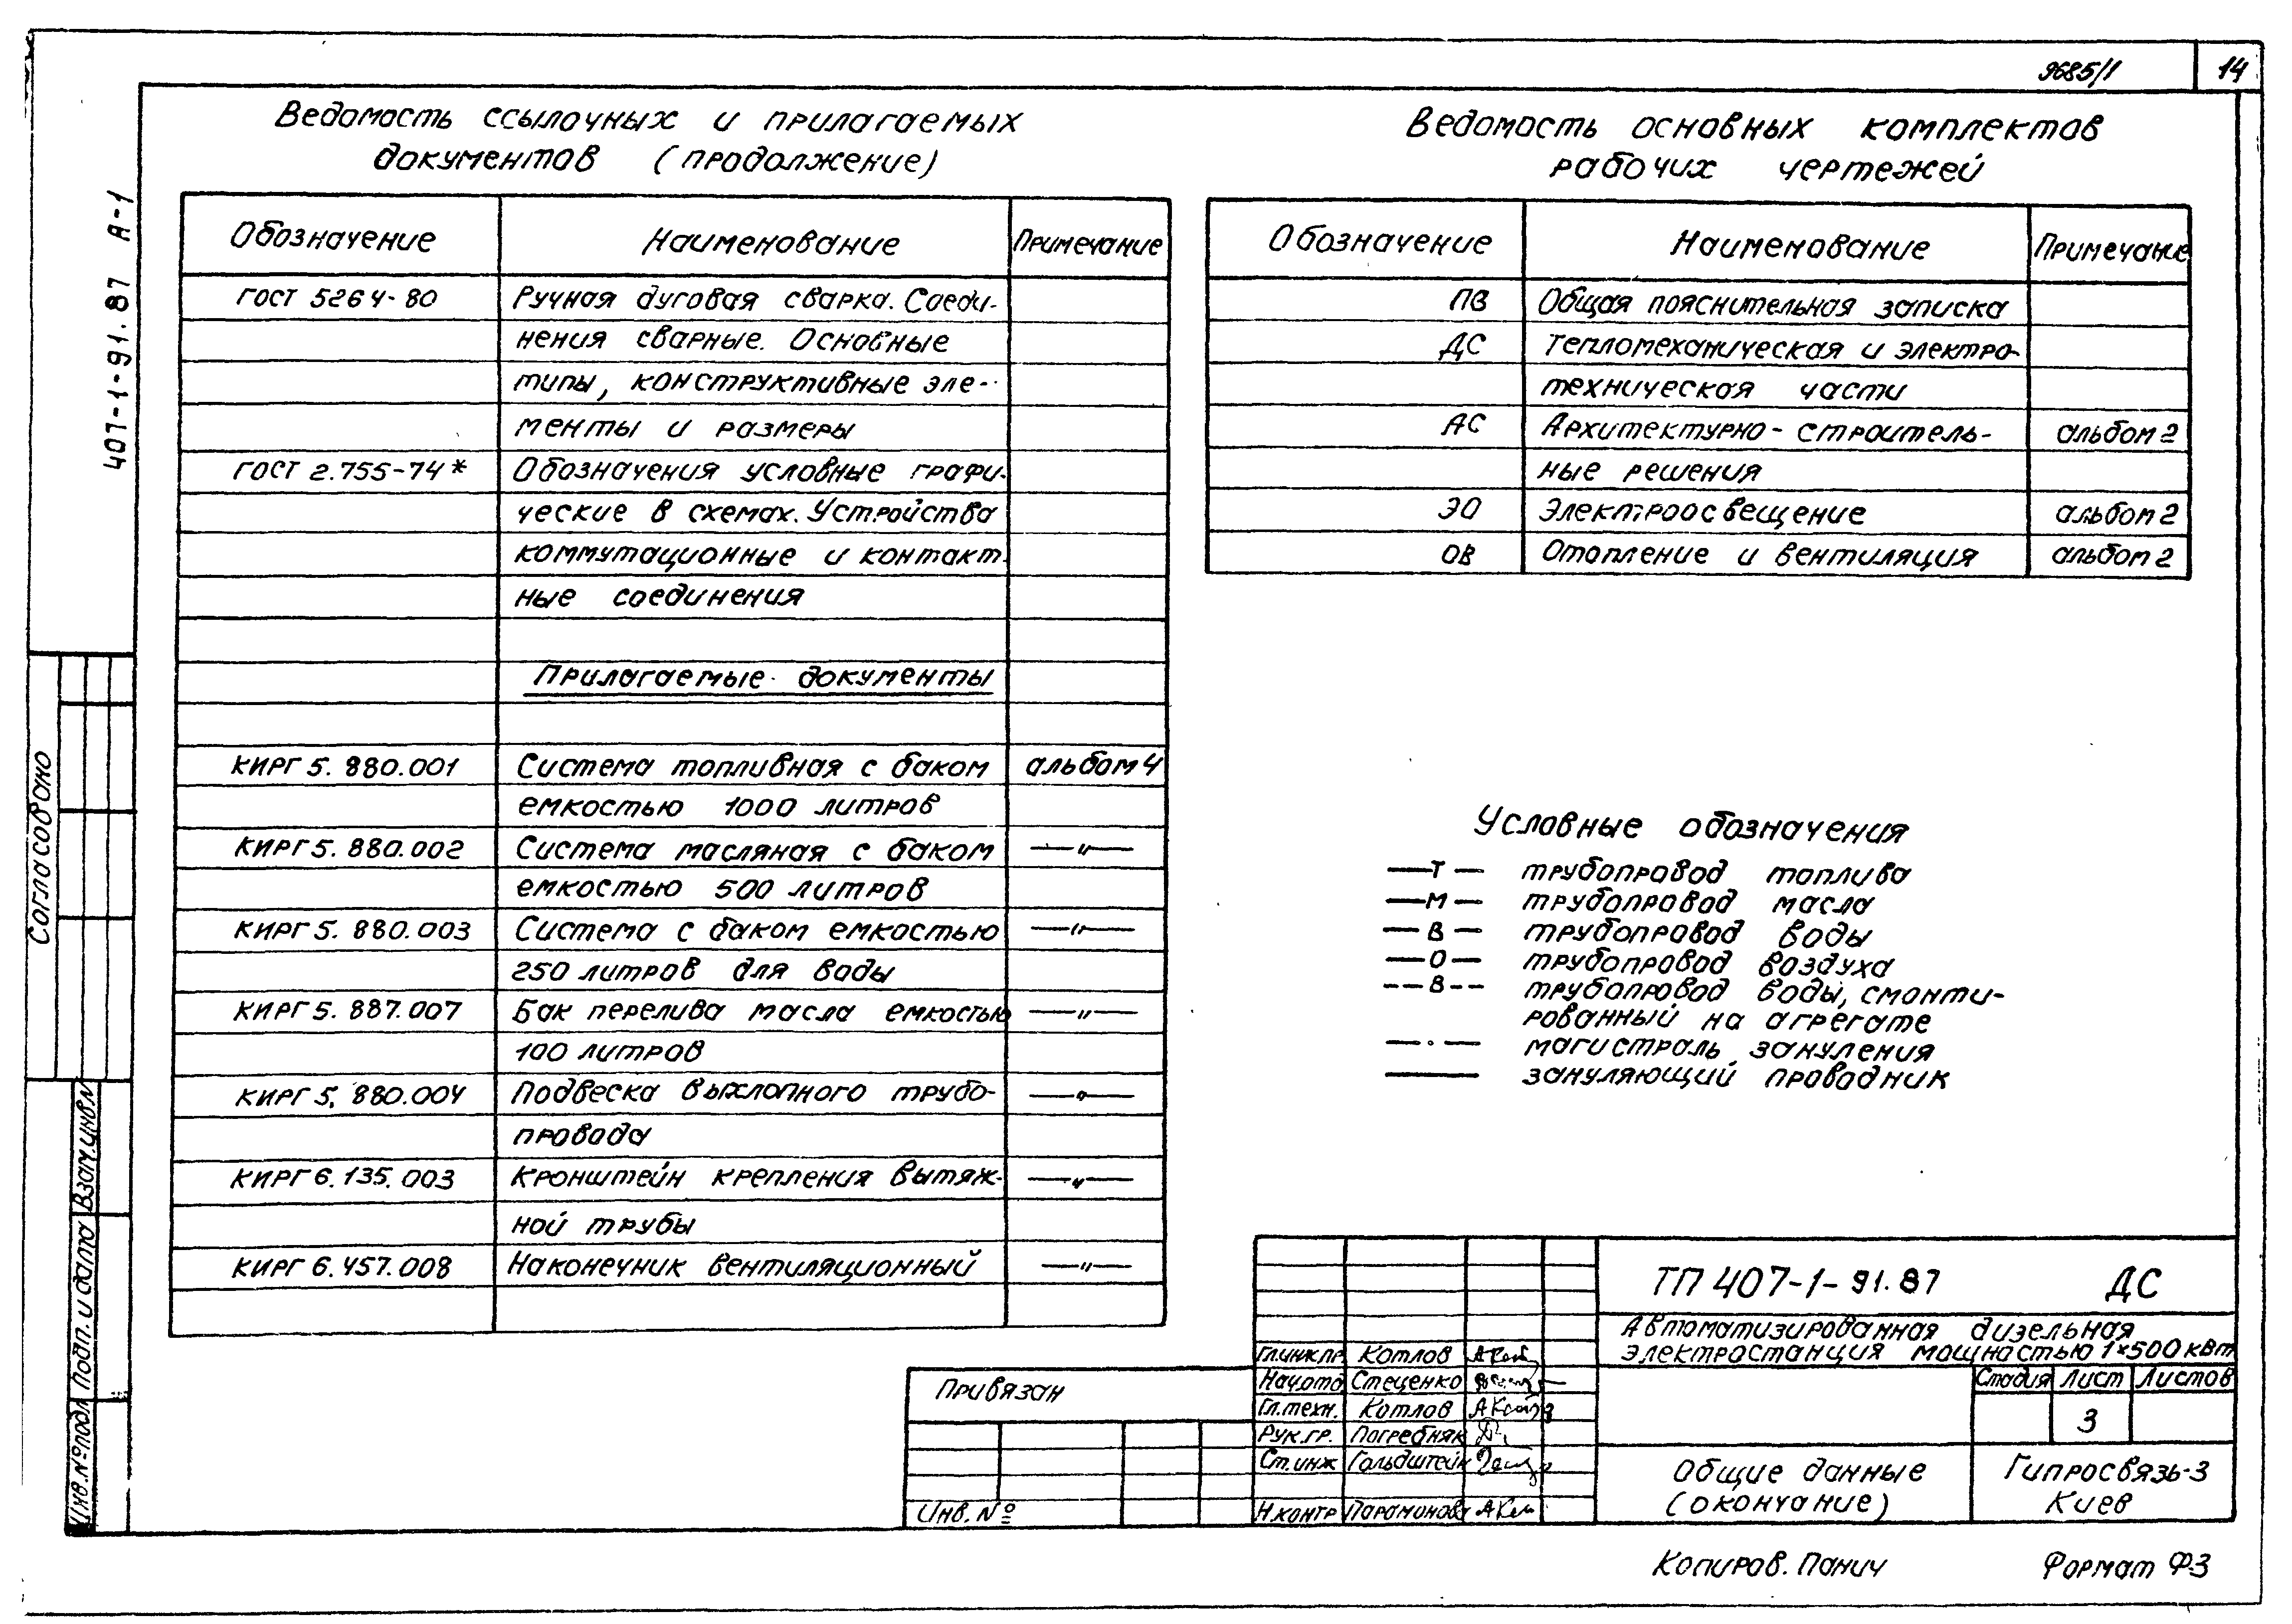 9685/1 14
407-1-91.87 А-1
Ведомость ссылочных и прилагаемых
документов (продолжение)
Обозначение Наименование Примечание
ГОСТ 5264-80 Ручная дуговая сварка. Соеди-
нения сварные. Основные
типы, конструктивные эле-
менты и размеры
ГОСТ 2.755-74* Обозначения условные графи-
ческие в схемах. Устройства
коммутационные и контакт-
ные соединения
Прилагаемые документы
КИРГ 5.880.001 Система топливная с баком альбом 4
емкостью 1000 литров
КИРГ 5.880.002 Система масляная с баком —〃—
емкостью 500 литров
КИРГ 5.880.003 Система с баком емкостью —〃—
250 литров для воды
КИРГ 5.887.007 Бак перелива масла емкостью —〃—
100 литров
КИРГ 5.880.004 Подвеска выхлопного трубо- —〃—
провода
КИРГ 6.135.003 Кронштейн крепления вытяж- —〃—
ной трубы
КИРГ 6.457.008 Наконечник вентиляционный —〃—
Ведомость основных комплектов
рабочих чертежей
Обозначение Наименование Примечание
ПВ Общая пояснительная записка
ДС Тепломеханическая и электро-
техническая части
АС Архитектурно-строитель- альбом 2
ные решения
ЭО Электроосвещение альбом 2
ОВ Отопление и вентиляция альбом 2
Условные обозначения
—Т— трубопровод топлива
—М— трубопровод масла
—В— трубопровод воды
—О— трубопровод воздуха
--В-- трубопровод воды, смонти-
рованный на агрегате
—·— магистраль зануления
—— зануляющий проводник
Согласовано
Взам.инв.N
Подп. и дата
Инв.№подл
Привязан
Инв. №
ТП 407-1-91.87 ДС
Автоматизированная дизельная
электростанция мощностью 1×500 кВт
Гл.инж.пр. Котлов
Нач.отд Стеценко
Гл.техн. Котлов
Рук.гр. Погребняк
Ст.инж Гольдштейн
Н.контр Парамонова
Стадия Лист Листов
3
Общие данные
(окончание)
Гипросвязь-3
Киев
Копиров. Панич Формат Ф3